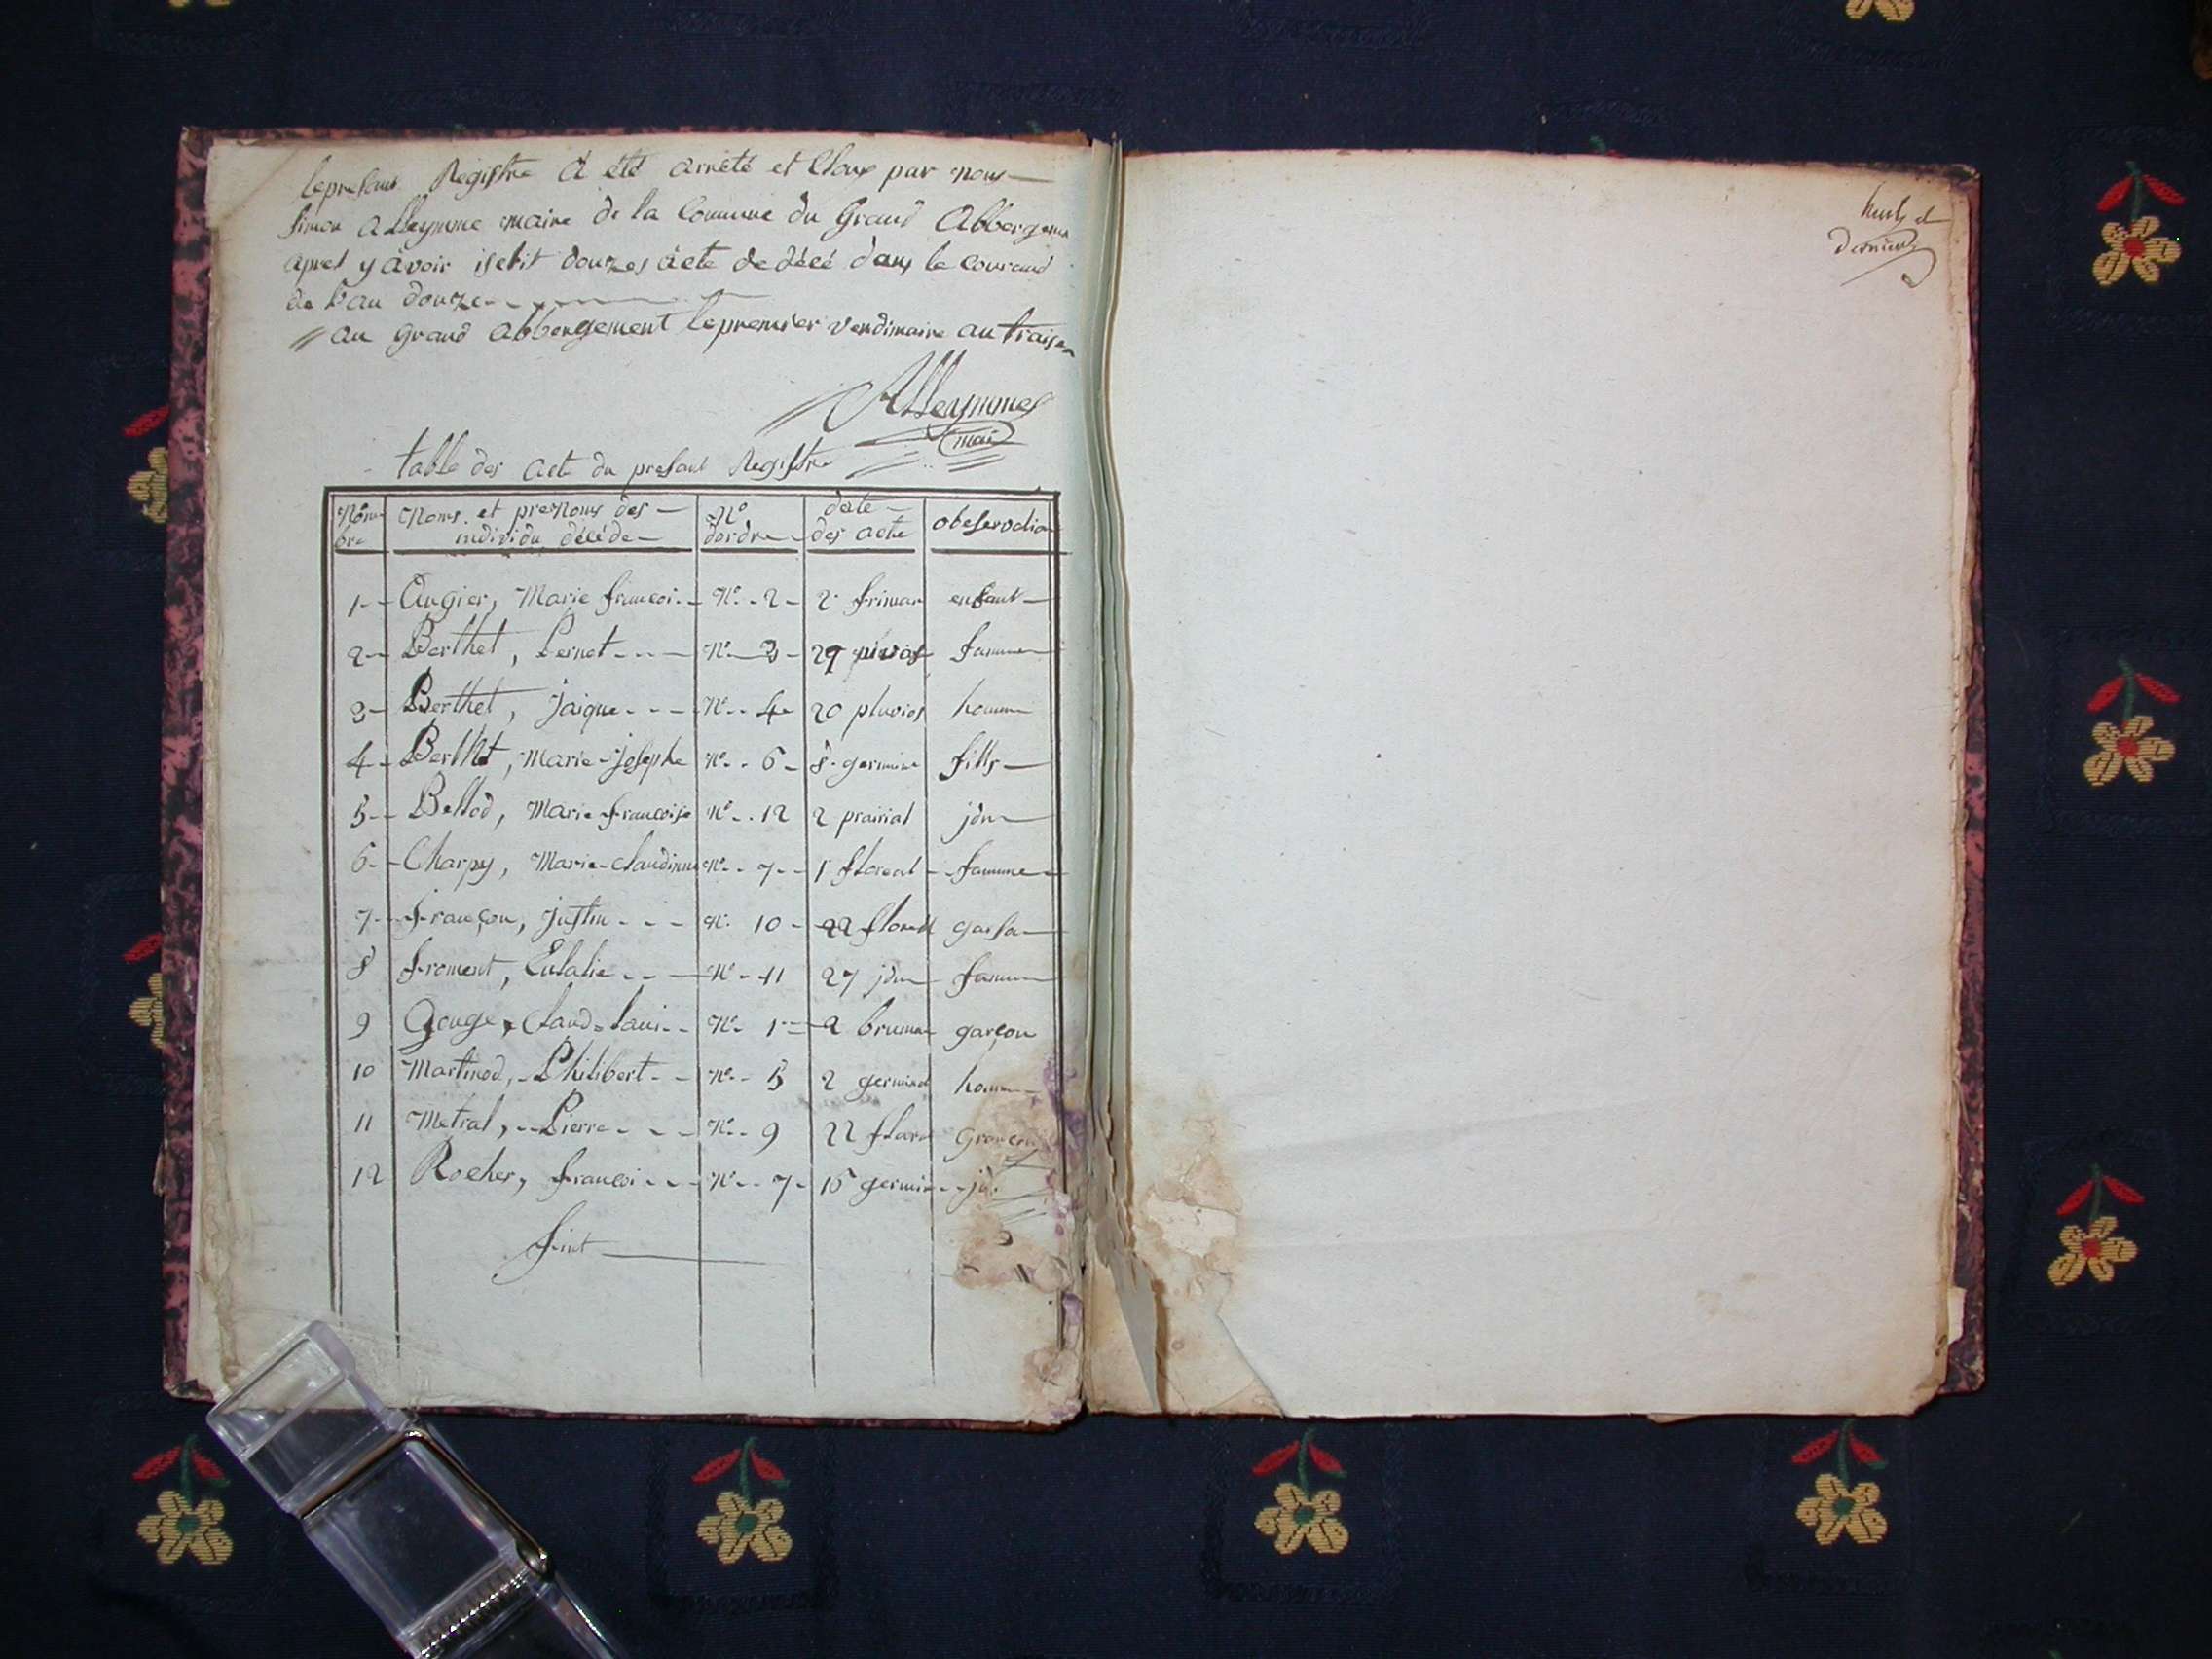 lepresant Registre a été arrété et Cloux par nous
Simon alleymme maire de la Commune du Grand Abbergeme
apret y avoir iscrit douzes acte de décé dans le courand
de l'an douze
au grand abbergement lepremier vendimaire an traise
Alleymmes
mai
table des acte du presant Registre
Nom- bre | Noms et preNoms des individu décéde | No dordre | date des acte | obeservation
1 Augier, Marie francoi No 2 2 frimar enfant
2 Berthet, Pernet No 3 29 nivos famme
3 Berthet, jaique No 4 20 pluvios homme
4 Berthet, Marie-josephe No 6 8 germina fills
5 Bellod, Marie francoise No 12 2 prairial jdm
6 Charpy, Marie-claudinne No 7 1 floreal famme
7 françon, justin No 10 22 floreal garsa
8 froment, Eulalie No 11 27 jdm famme
9 Gouge, Claud=Laui No 1 2 brumar garçon
10 Martinod, Philibert No 5 2 germinal homme
11 Metral, Pierre No 9 22 florea
12 Rocher, francoi No 7 15 germin jd
fint
derniere